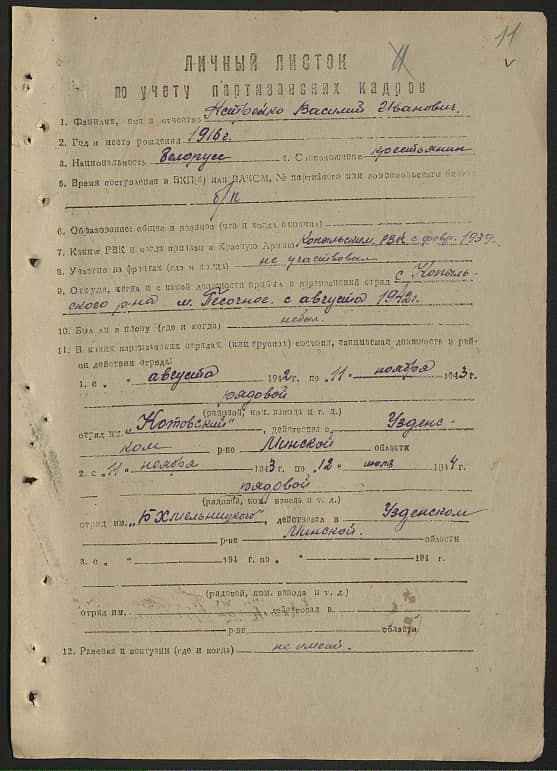 11
ЛИЧНЫЙ ЛИСТОК
по учету партизанских кадров
1. Фамилия, имя и отчество Ястренко Василий Иванович.
2. Год и место рождения 1916 г.
3. Национальность белорусс 4. С.положение крестьянин
5. Время поступления в ВКП(б) или ВЛКСМ, № партийного или комсомольского билета
б/п
6. Образование: общие и военное (что и когда окончил)
7. Каким РВК и когда призван в Красную Армию Копыльским РВК с февр. 1939г.
8. Участие на фронтах (где и когда) не участвовал
9. Откуда, когда и с какой должности прибыл в партизанский отряд с Копыль-
ского р-на м. Песочное. с августа 1942г.
10. Был ли в плену (где и когда) небыл.
11. В каких партизанских отрядах (или группах) состоял, занимаемая должность и рай-
он действия отряда:
1. с " августа 1942г. по "11" ноября 1943 г.
рядовой
(рядовой, ком. взвода и т. д.)
отряд им. "Котовский", действовал в Узденс-
ком р-не Минской области
2. с "11" ноября 1943г. по "12" июля 1944г.
рядовой
(рядовой, ком. взвода и т. д.)
отряд им. "Б Хмельницкого", действовал в Узденском
р-не Минской. области
3. с " " 194 г. по " " 194 г.
(рядовой, ком. взвода и т. д.)
отряд им. действовал в
р-не области
12. Ранения и контузии (где и когда) не имеет.